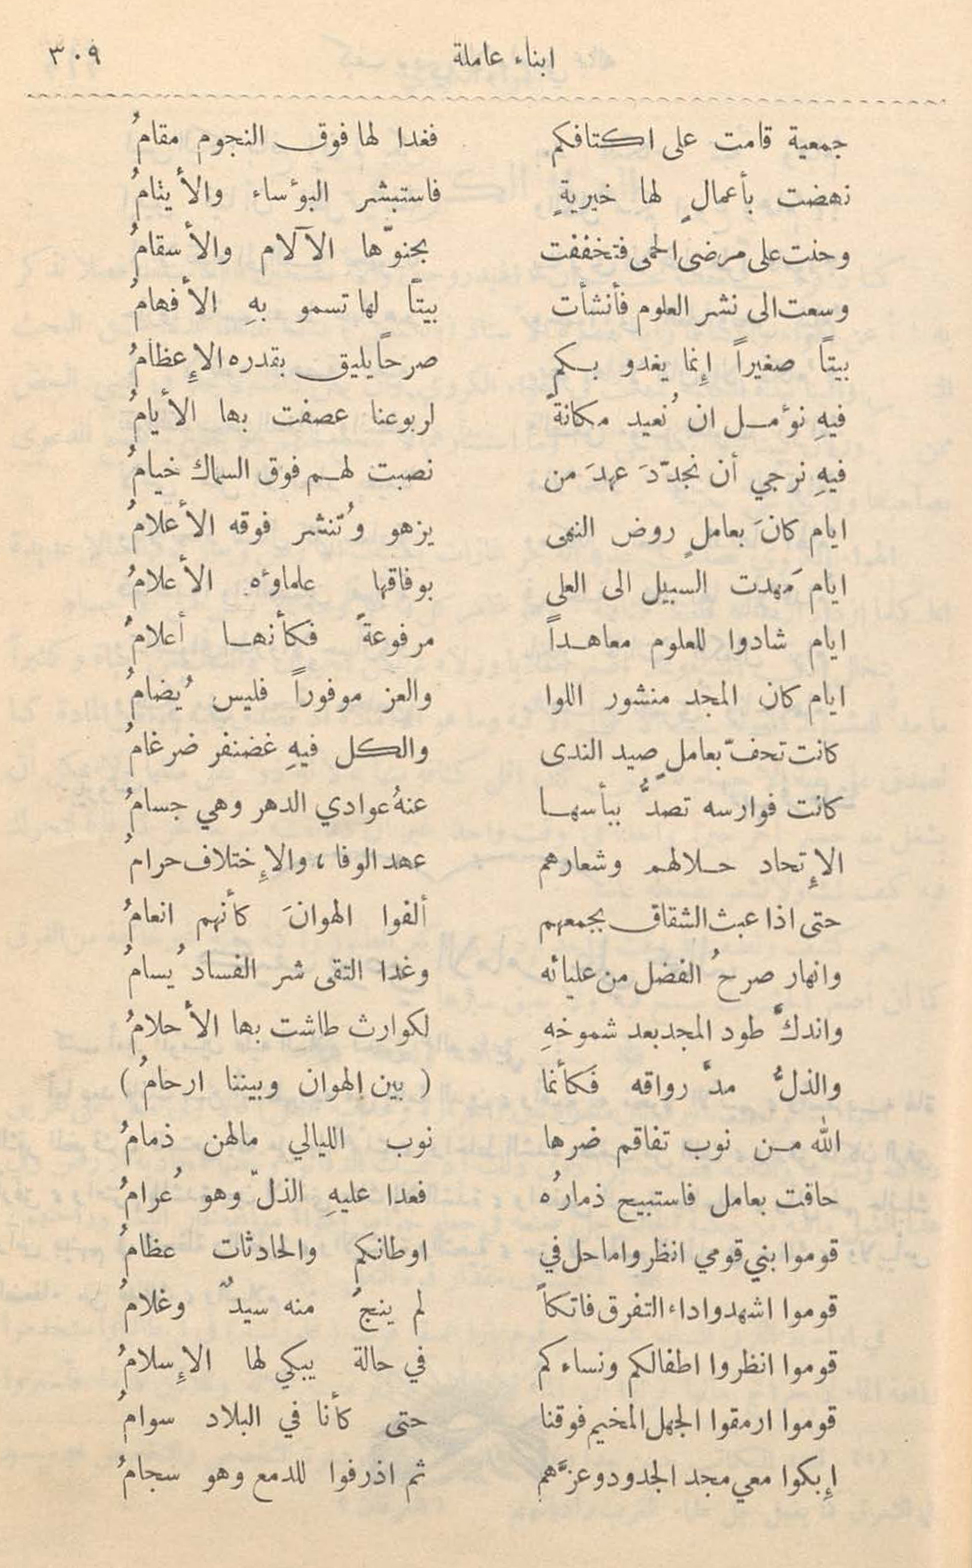 ابناء عاملة ٣٠٩
جمعية قامت على اكتافكم فغدا لها فوق النجوم مقامُ
نهضت بأعمالٍ لها خيريةٍ فاستبشر البؤساء والأيتامُ
وحنت على مرضى الحمى فتخففت بجنوّها الآلام والأسقامُ
وسعت الى نشر العلوم فأنشأت بيتًا لها تسمو بهِ الأفهامُ
بيتًا صغيراً إنما يغدو بكم صرحًا يليق بقدره الإِعظامُ
فيهِ نؤمل ان نُعيد مكانةً لربوعنا عصفت بها الأيامُ
فيهِ نرجي أن نجدّدَ عهدَ من نصبت لهم فوق السماك خيامُ
ايام كانَ بعاملٍ روض النهى يزهو وتُنشر فوقه الأعلامُ
ايام مَهدت السبيل الى العلى بوفاقها علماؤه الأعلامُ
ايام شادوا للعلوم معاهداً مرفوعةً فكأنها أعلامُ
ايام كان المجد منشور اللوا والعز موفوراً فليس يُضامُ
كانت تحفّ بعاملٍ صيد الندى والكل فيهِ غضنفر ضرغامُ
كانت فوارسه تصدُّ ببأسها عنهُ عوادي الدهر وهي جسامُ
الإتحاد حلالهم وشعارهم عهد الوفاء، والإختلاف حرامُ
حتى اذا عبث الشقاق بجمعهم ألفوا الهوانَ كأنهم انعامُ
وانهار صرحُ الفضل من عليائه وغدا التقى شر الفساد يُسامُ
واندكَّ طود المجد بعد شموخهِ لكوارث طاشت بها الأحلامُ
والذلُّ مدَّ رواقه فكأنما ( بين الهوان وبيننا ارحامُ )
الله من نوب تفاقم ضرها نوب الليالي مالهن ذمامُ
حافت بعامل فاستبيح ذمارُه فعدا عليهِ الذلّ وهو عُرامُ
قوموا بني قومي انظروا ماحل في اوطانكم والحادثات عظامُ
قوموا اشهدوا داء التفرق فاتكاً لم ينجُ منه سيدٌ وغلامُ
قوموا انظروا اطفالكم ونساءكم في حالة يبكي لها الإِسلامُ
قوموا ارمقوا الجهل المخيم فوقنا حتى كأنا في البلاد سوامُ
إبكوا معي مجد الجدود وعزَّهم ثم اذرفوا للدمع وهو سجامُ